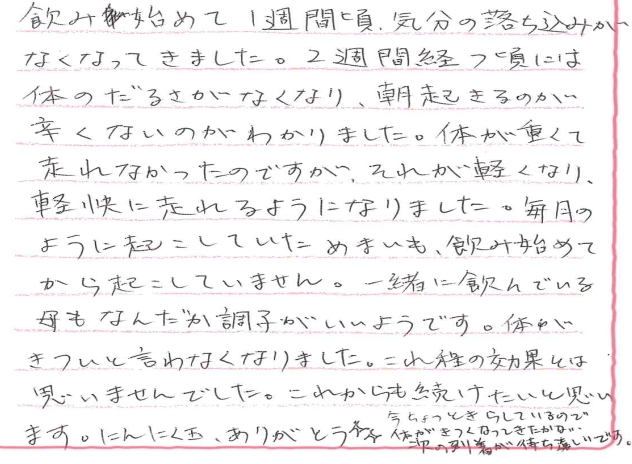 飲み始めて1週間頃、気分の落ち込みが
なくなってきました。2週間経つ頃には
体のだるさがなくなり、朝起きるのが
辛くないのがわかりました。体が重くて
走れなかったのですが、それが軽くなり、
軽快に走れるようになりました。毎月の
ように起こしていためまいも、飲み始めて
から起こしていません。一緒に飲んでいる
母もなんだか調子がいいようです。体が
きついと言わなくなりました。これ程の効果とは
思いませんでした。これからも続けたいと思い
ます。にんにく玉、ありがとう
今ちょっときらしているので
体がきつくなってきたかな…
次の到着が待ち遠しいです。